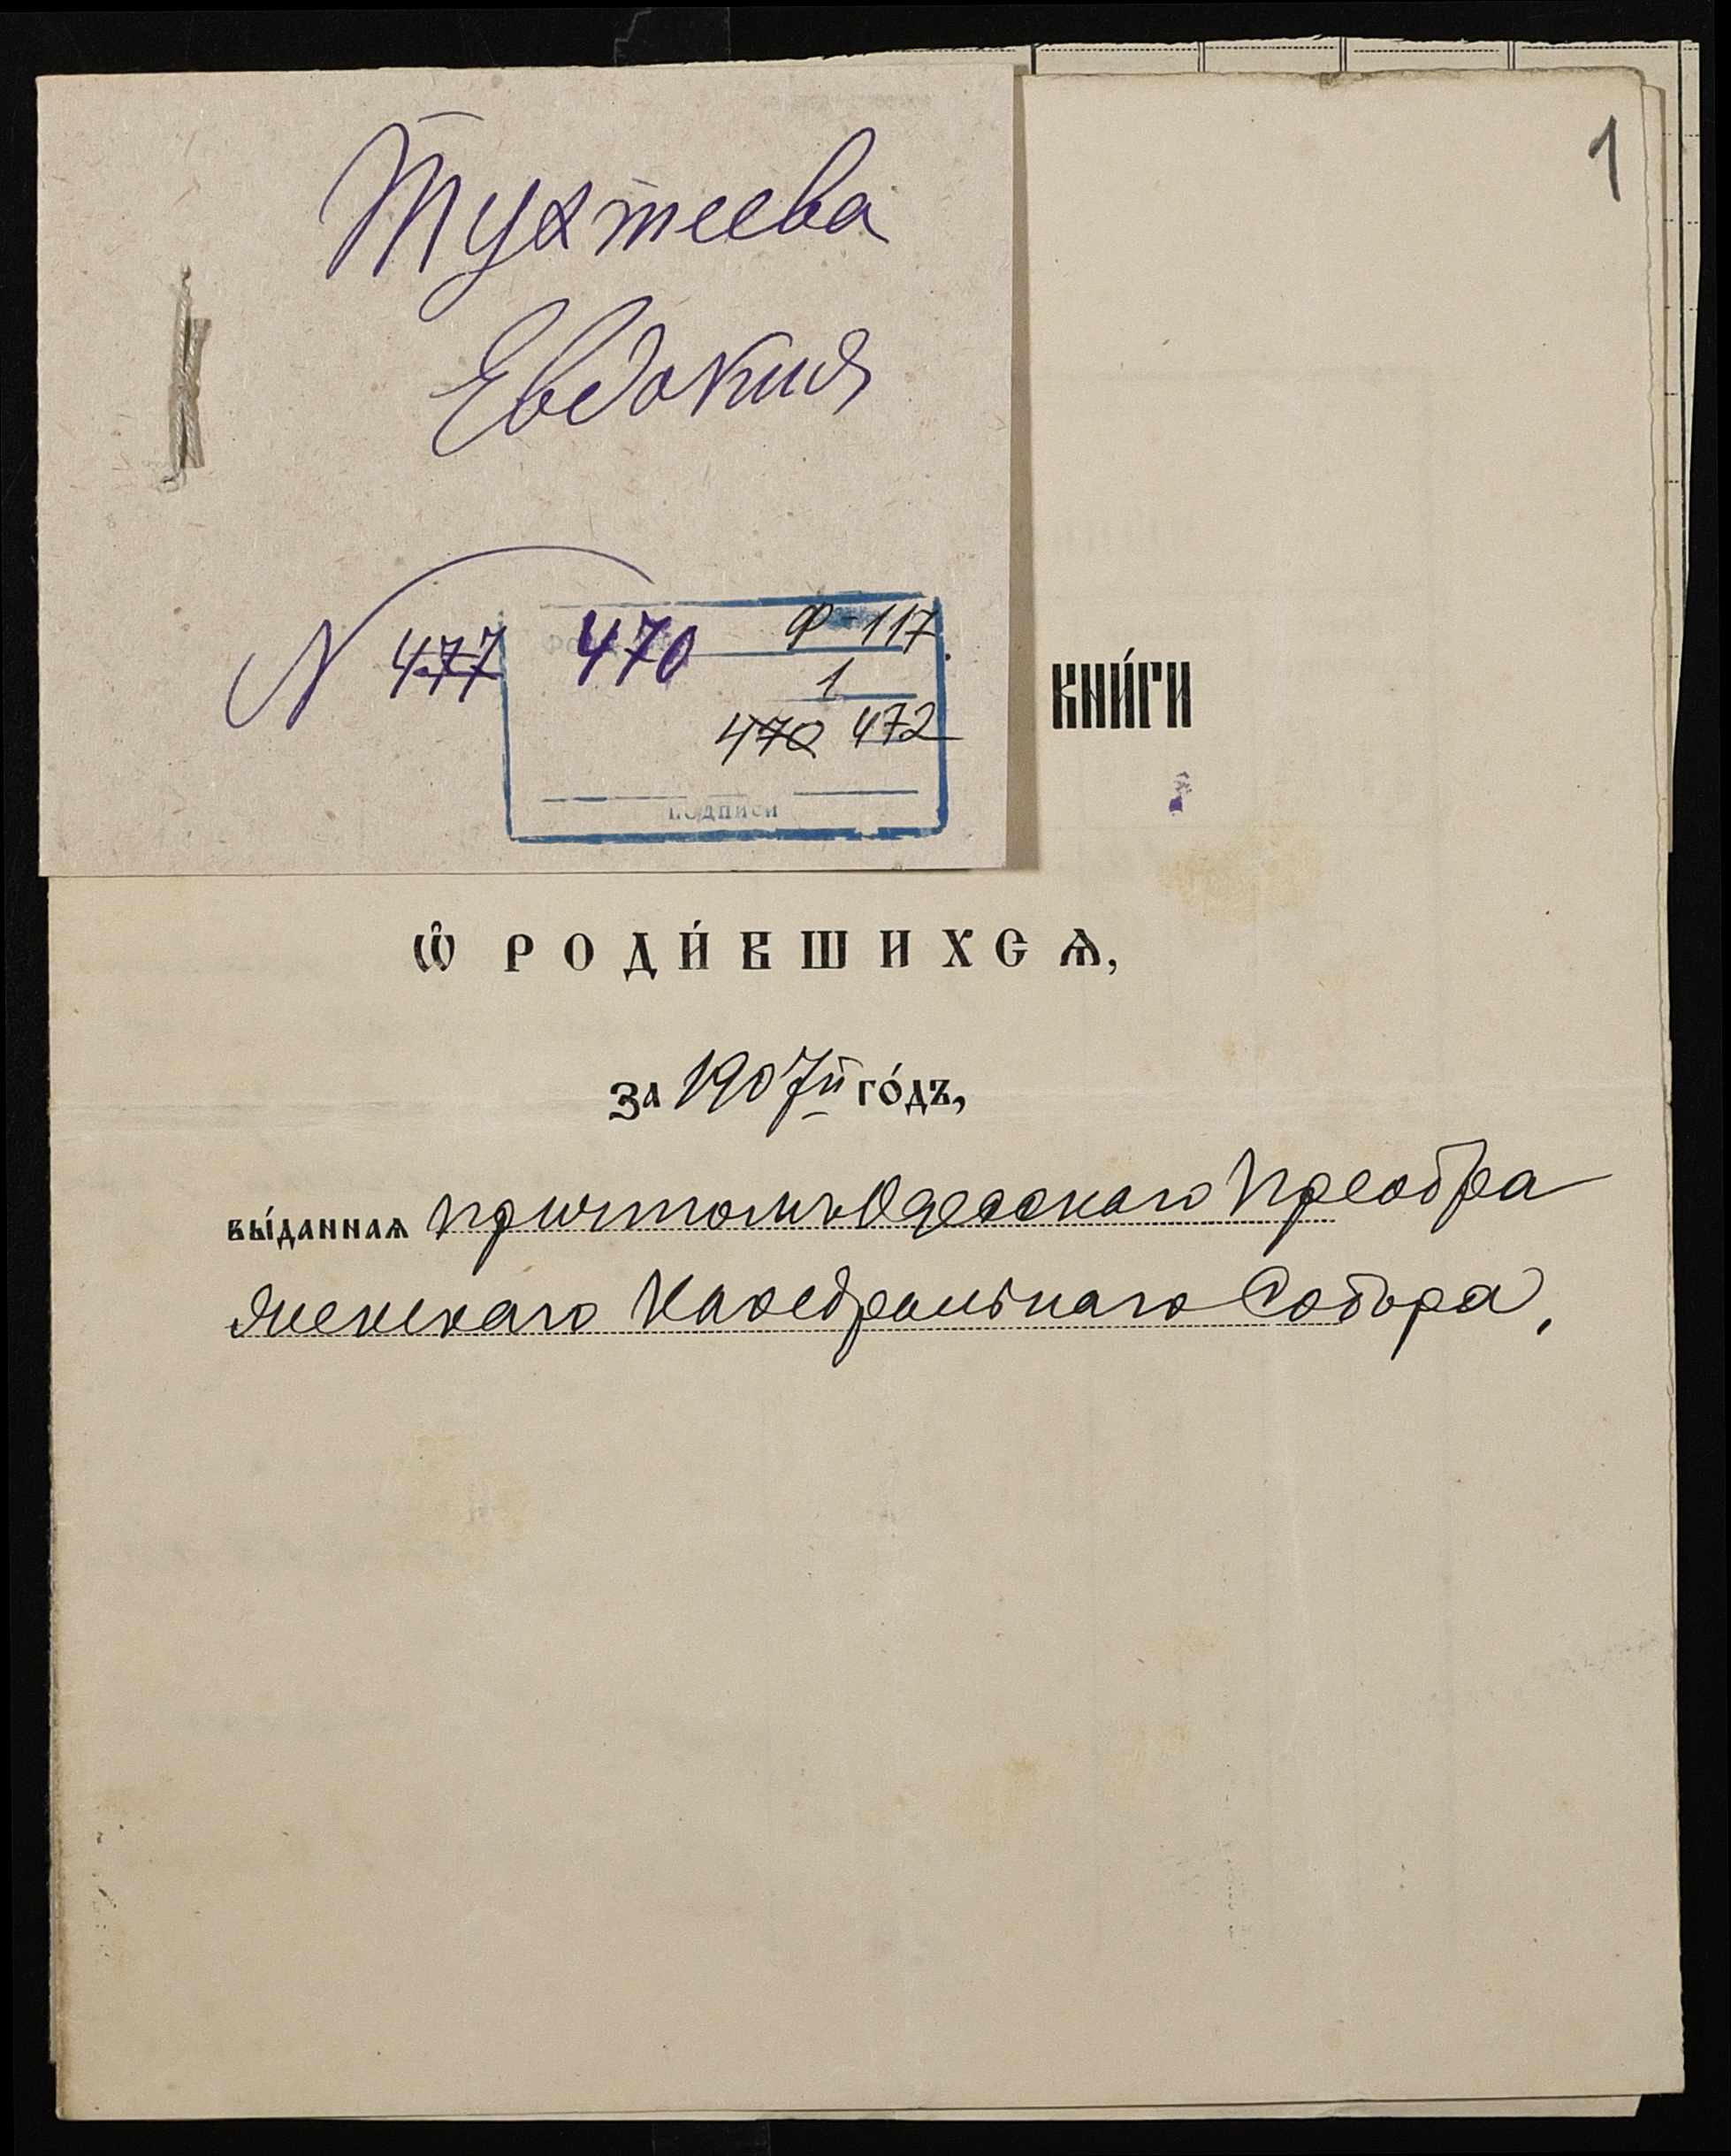 1
Тухтеева
Евдокия
N 477 470
Ф-117.
1
470 472
подписи
КНИ́ГИ
Ѡ҃ РОДИ́ВШИХСѦ,
за 1907й го́дъ,
вы́даннаѧ причтомъ Одесскаго Преобра
женскаго Каѳедральнаго Собора,